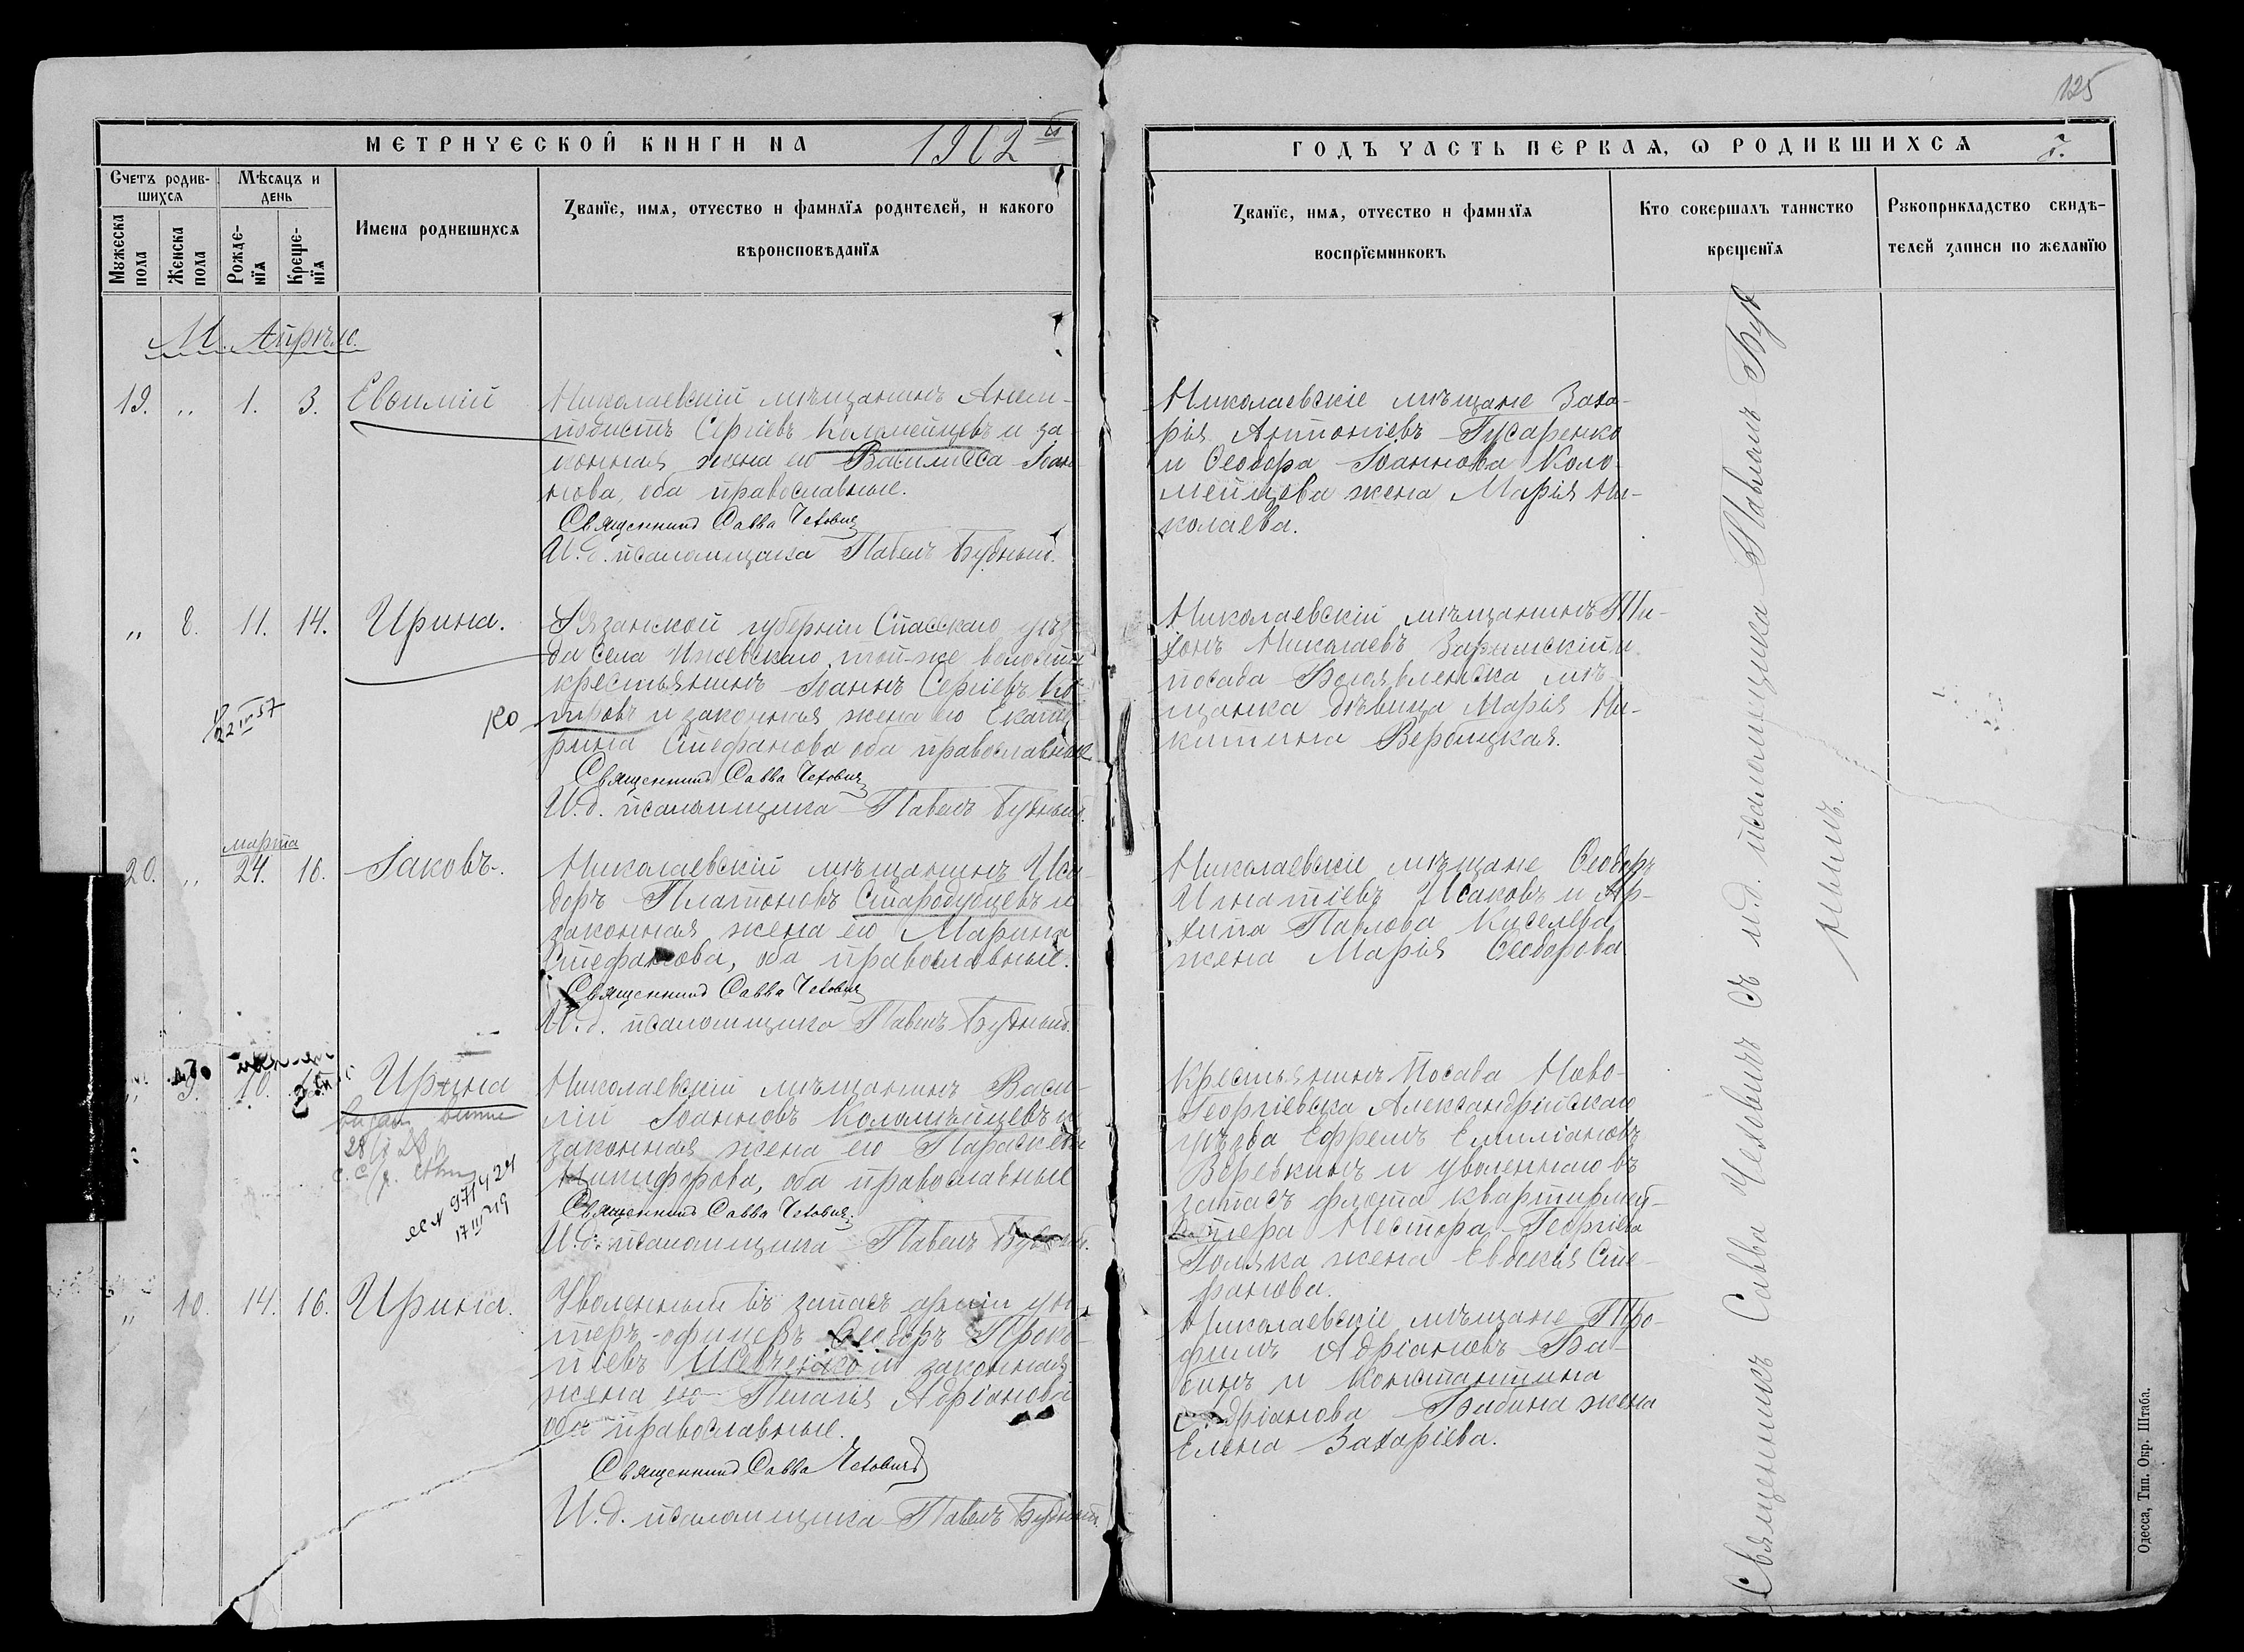 125
МЕТРИЧЕСКОЙ КНИГИ НА 1902 й
ГОДЪ ЧАСТЬ ПЕРВАЯ, Ѡ РОДИВШИХСЯ
Счетъ родив-
шихся
Мѣсяцъ и
день
Мужеска пола
Женска пола
Рожде-
нїя
Креще-
нїя
Имена родившихся
Званїе, имя, отчество и фамилїя родителей, и какого
вѣроисповѣданїя
Званїе, имя, отчество и фамилїя
воспрїемниковъ
Кто совершалъ таинство
крещенїя
Рукоприкладство свидѣ-
телей записи по желанїю
М. Апрѣль.
19. „ 1. 3. Евѳимій
Николаевскій мѣщанинъ Анем-
подистъ Сергіевъ Коломейцевъ и за-
конная жена его Василисса Іоан-
нова, оба православные.
Священникъ Савва Чехович
И. д. псаломщика Павелъ Будный.
Николаевскіе мѣщане Заха-
рія Антоніевъ Гусаренко
и Ѳеодора Іоаннова Коло-
мейцева жена Марія Ни-
колаева.
„ 8. 11. 14. Ирина.
Рязанской губерніи Спасскаго уѣз-
да села Ижевскаго, той-же волости
крестьянинъ Іоаннъ Сергіевъ
и законная жена его Екате-
рина Стефанова оба православные
Священникъ Савва Чехович
И. д. псаломщика Павелъ Будный.
Николаевскій мѣщанинъ Ти-
хонъ Николаевъ и
посада Богоявленска мѣ-
щанка дѣвица Марія Ни-
китина Вербицкая.
марта
20. „ 24. 16. Іаковъ.
Николаевскій мѣщанинъ Иси-
доръ Платоновъ Стародубцевъ и
законная жена его Марина
Стефанова, оба православные.
Священникъ Савва Чехович
И. д. псаломщика Павелъ Будный.
Николаевскіе мѣщане Ѳеодоръ
Игнатіевъ Исаковъ и Ар-
хипа Павлова Киселева
жена Марія Ѳеодорова
„ 9. 10. Ирина
Николаевскій мѣщанинъ Васи-
лій Іоанновъ Коломѣйцевъ и
законная жена его Параскева
Никифорова, оба православные
Священникъ Савва Чехович
И. д. псаломщика Павелъ
971424
17 III 19
Крестьянинъ Посада Ново-
Георгіевска Александрійскаго
уѣзда Ефремъ Емиліановъ
Веревкинъ и уволеннаго въ
запасъ флота квартирмей-
стера Нестора Георгіева
Поляка жена Евдокія Сте-
фанова.
„ 10. 14. 16. Ирина.
Уволенный въ запасъ арміи ун-
теръ-офицеръ Ѳеодоръ Проко-
піевъ Шевченко и законная
жена его Пелагія Адріанова
оба православные.
Священникъ Савва Чеховичъ
И. д. псаломщика Павелъ Будный.
Николаевскіе мѣщане Тро-
фимъ Адріановъ Ба-
бинъ и Константина
Адріанова Бабина жена
Елена Захаріева.
Священникъ Савва Чеховичъ съ и.д. псаломщика Павломъ Буд
нымъ.
Одесса, Тип. Окр. Штаба.